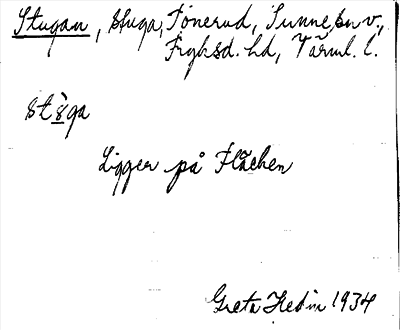 Stugan, stuga, Tönerud, Sunne sn v.,
Fryksd. hd, Värml. l.
stŏ̀ga
Ligger på Fläcken
Greta Hedin 1934